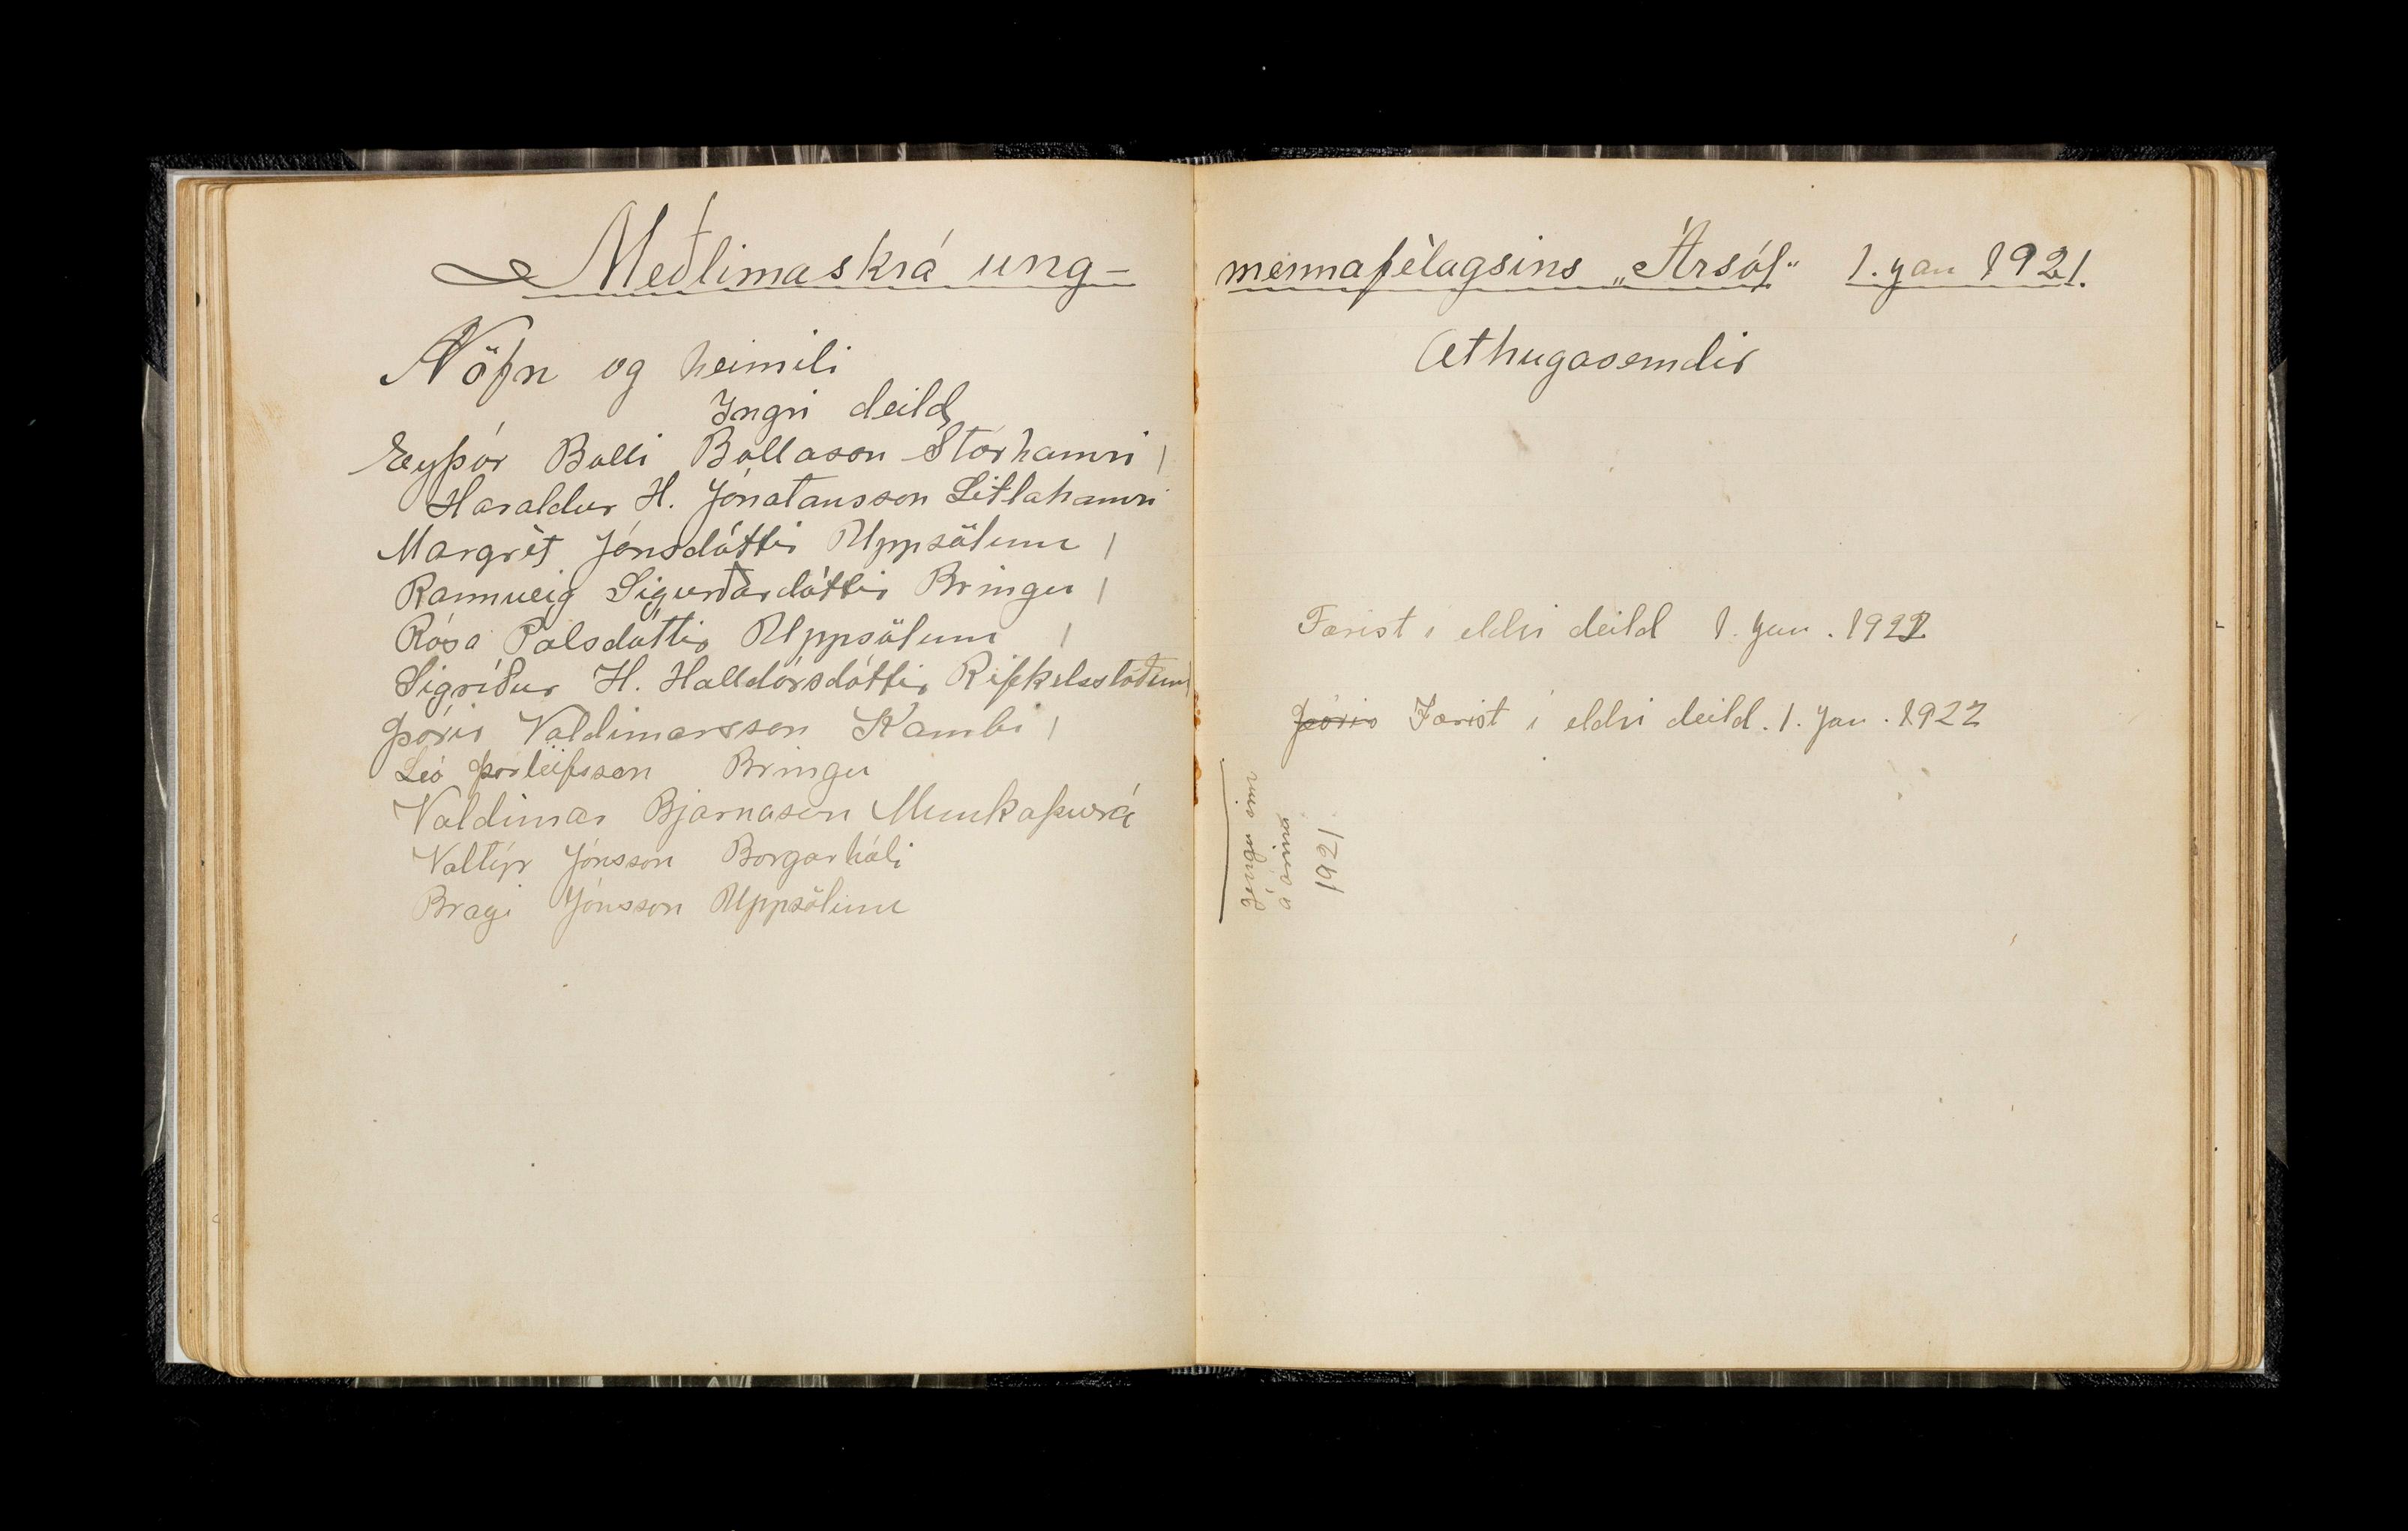 Meðlimaskrá ung-
Nöfn og heimili
Yngri deild
Eyþór Bolli Bollason Stórhamri |
Haraldur H. Jónatansson Litlahamri
Margrèt Jónsdóttir Uppsölum |
Rannveig Sigurðardóttir Bringu |
Rósa Pálsdóttir Uppsölum |
Sigríður H. Halldórsdóttir Rifkelsstöðum |
Þórir Valdimarsson Kambi |
Leó Þorleifsson Bringu
Valdimar Bjarnason Munkaþverá
Valtýr Jónsson Borgarhóli
Bragi Jónsson Uppsölum
mennafèlagsins „Ársól“ 1. jan 1921.
Athugasemdir
Færist í eldri deild 1. Jan. 1922
Þórir Færist í eldri deild. 1. Jan. 1922
Gengu inn
á árinu
1921